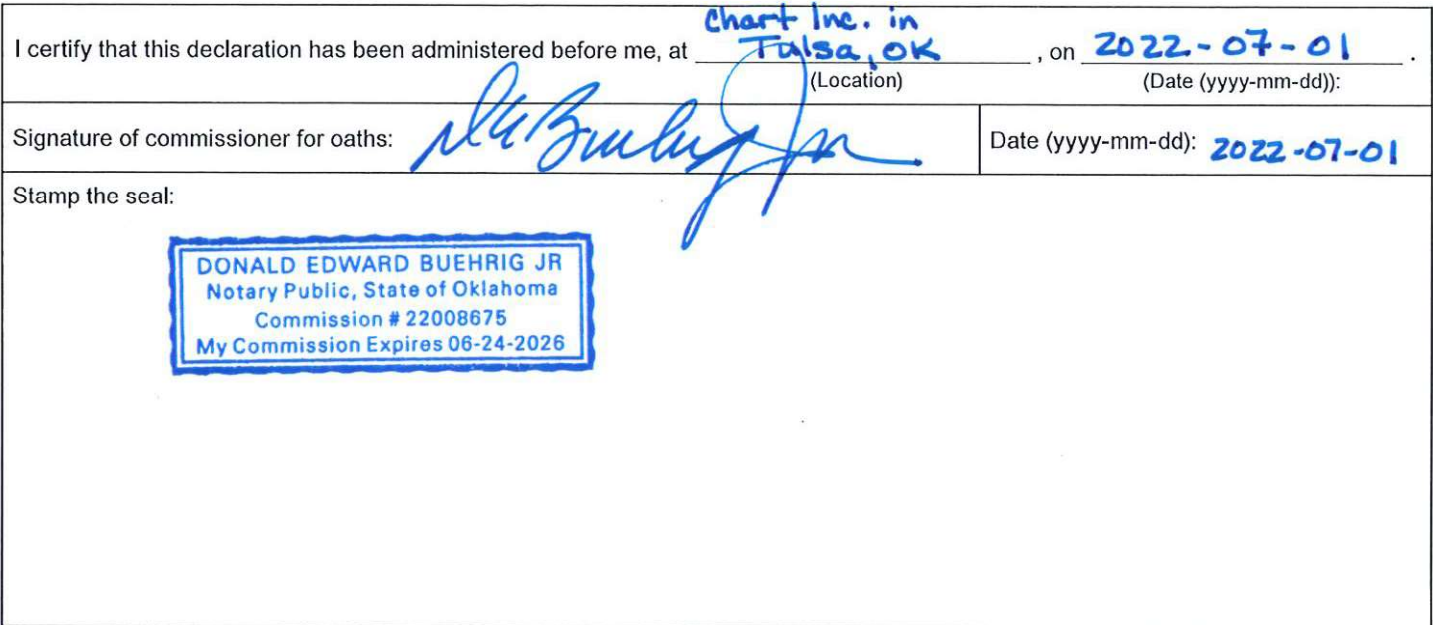 Chart Inc. in
I certify that this declaration has been administered before me, at Tulsa, OK , on 2022-07-01 .
(Location) (Date (yyyy-mm-dd)):
Signature of commissioner for oaths: Date (yyyy-mm-dd): 2022-07-01
Stamp the seal:
DONALD EDWARD BUEHRIG JR
Notary Public, State of Oklahoma
Commission # 22008675
My Commission Expires 06-24-2026